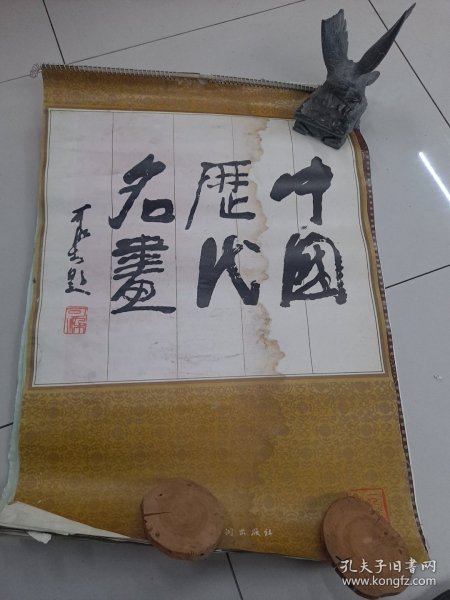 中國
歷代
名畫
题
出版社
孔夫子旧书网
www.kongfz.com